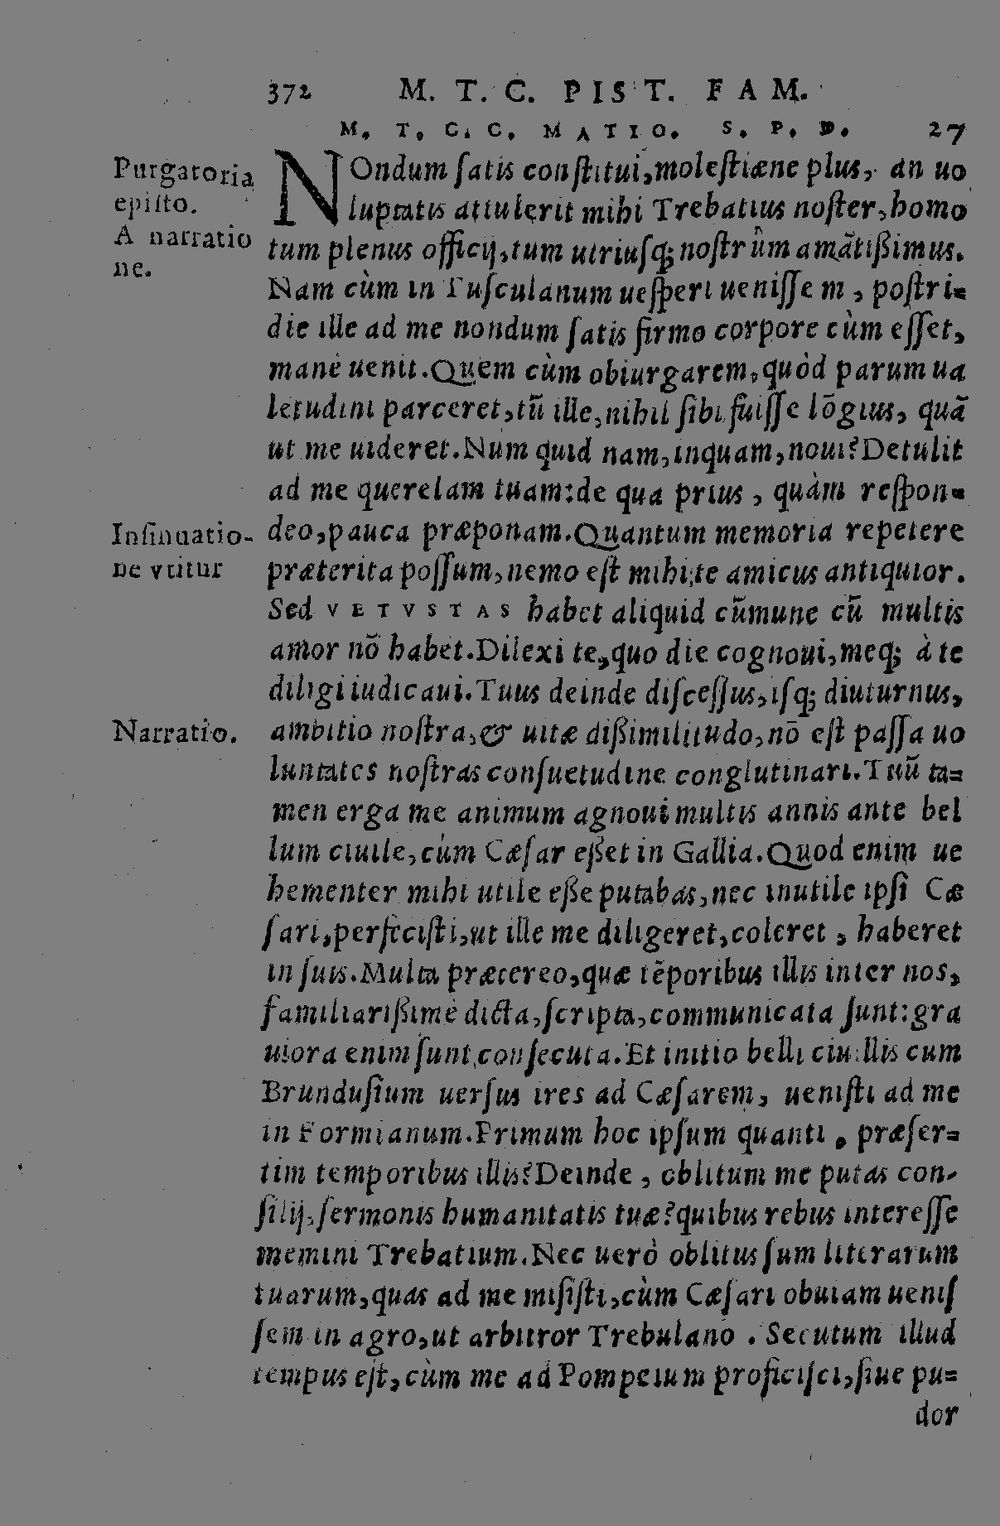 372 M. T. C. PIST. FAM.
M. T. C. C. MATIO. S. P. D. 27
Purgatoria
episto.
A narratio
ne.
NOndum satis constitui, molestiæne plus, an uo
luptatis attulerit mihi Trebatius noster, homo
tum plenus officij, tum utriusq; nostrûm amãtißimus.
Nam cùm in Tusculanum uesperi uenissem, postri=
die ille ad me nondum satis firmo corpore cùm esset,
manè uenit. Quem cùm obiurgarem, quòd parum ua
letudini parceret, tũ ille, nihil sibi fuisse lõgius, quã
ut me uideret. Num quid nam, inquam, noui? Detulit
ad me querelam tuam: de qua prius, quàm respon=
Insinuatio-
ne vtitur
deo, pauca præponam. Quantum memoria repetere
præterita possum, nemo est mihi te amicus antiquior.
Sed VETVSTAS habet aliquid cũmune cũ multis
amor nõ habet. Dilexi te, quo die cognoui, meq; à te
diligi iudicaui. Tuus deinde discessus, isq; diuturnus,
Narratio.
ambitio nostra, & uitæ dißimilitudo, nõ est passa uo
luntates nostras consuetudine conglutinari. Tuũ ta=
men erga me animum agnoui multis annis ante bel
lum ciuile, cùm Cæsar eßet in Gallia. Quod enim ue
hementer mihi utile eße putabas, nec inutile ipsi Cæ
sari, perfecisti, ut ille me diligeret, coleret, haberet
in suis. Multa prætereo, quæ tẽporibus illis inter nos,
familiarißimè dicta, scripta, communicata sunt: gra
uiora enim sunt consecuta. Et initio belli ciuilis cum
Brundusium uersus ires ad Cæsarem, uenisti ad me
in Formianum. Primum hoc ipsum quanti, præser=
tim temporibus illis? Deinde, oblitum me putas con-
silij, sermonis humanitatis tuæ? quibus rebus interesse
memini Trebatium. Nec uerò oblitus sum literarum
tuarum, quas ad me misisti, cùm Cæsari obuiam uenis
sem in agro, ut arbitror Trebulano. Secutum illud
tempus est, cùm me ad Pompeium proficisci, siue pu=
dor